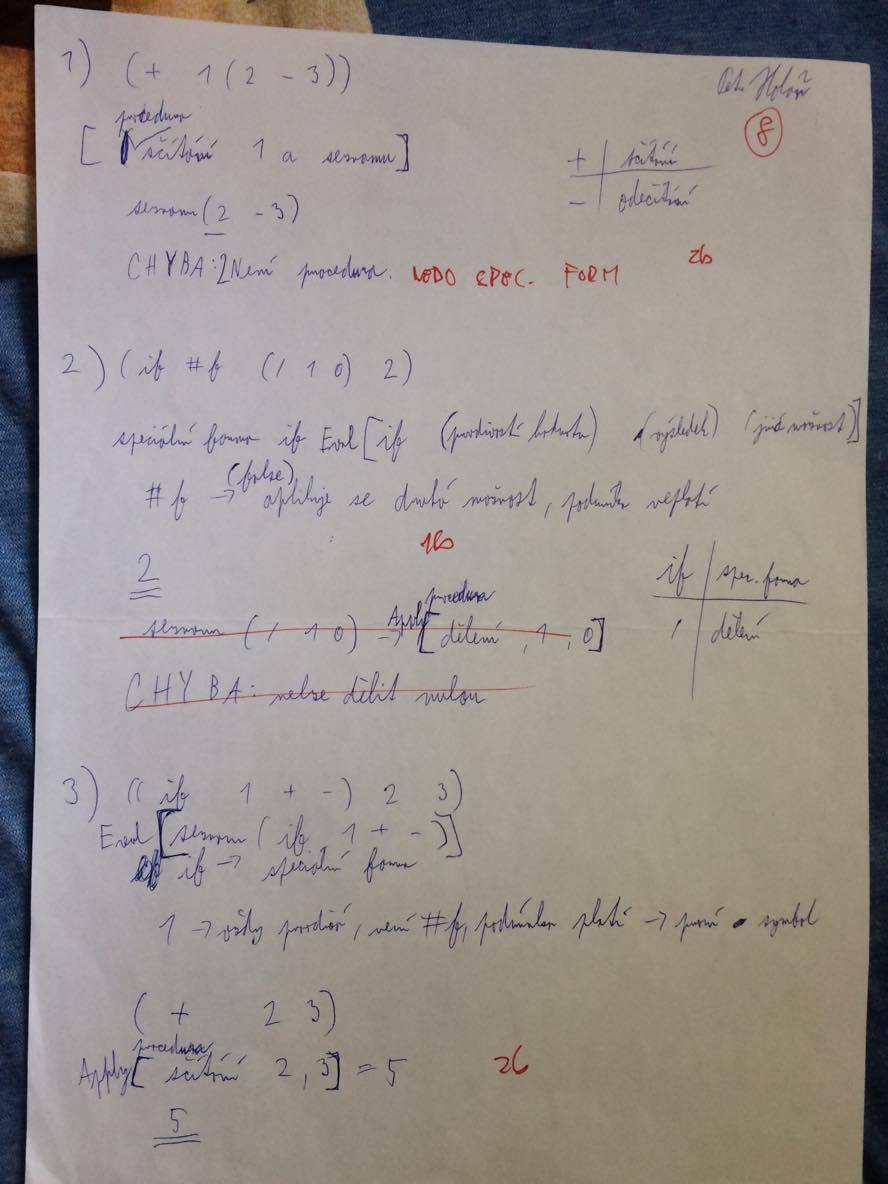 1) (+ 1 (2 - 3))
8
procedura
[ sčítání 1 a seznamu]
+ | sčítání
- | odečítání
seznam (2 -3)
CHYBA: 2 Není procedura. NEBO SPEC. FORM 2b
2) (if #f (/ 1 0) 2)
speciální forma if Eval [if (pravdivostí hodnota) (výsledek) (jiná možnost)]
(false)
#f → aplikuje se druhá možnost, podmínka neplatí
1b
2
if | spec. forma
/ | dělení
procedura
seznam (/ 1 0) → Apply [dělení, 1, 0]
CHYBA: nelze dělit nulou
3) ((if 1 + -) 2 3)
Eval [seznam (if 1 + -)]
if → speciální forma
1 → vždy pravdivá, není #f, podmínka platí → první symbol
(+ 2 3)
procedura
Apply [sčítání 2, 3] = 5 2b
5